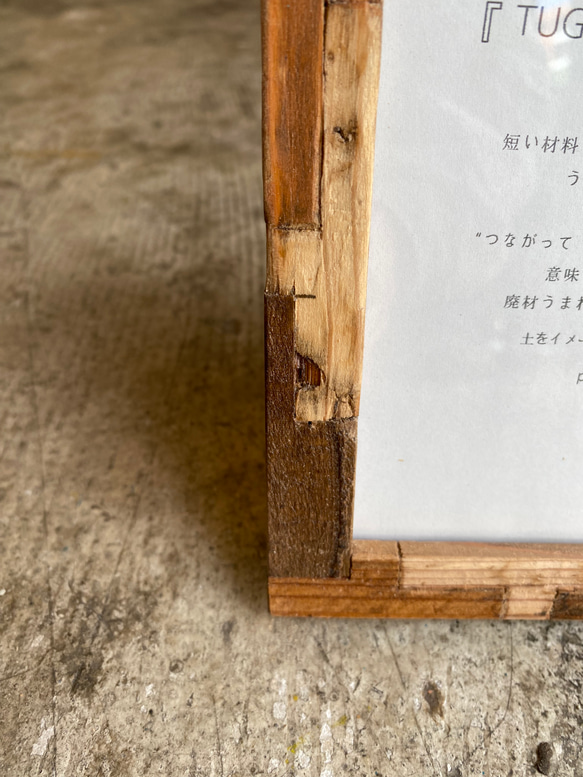 『 TUG
短い材料
う
"つながって
意味
廃材うまれ
土をイメー